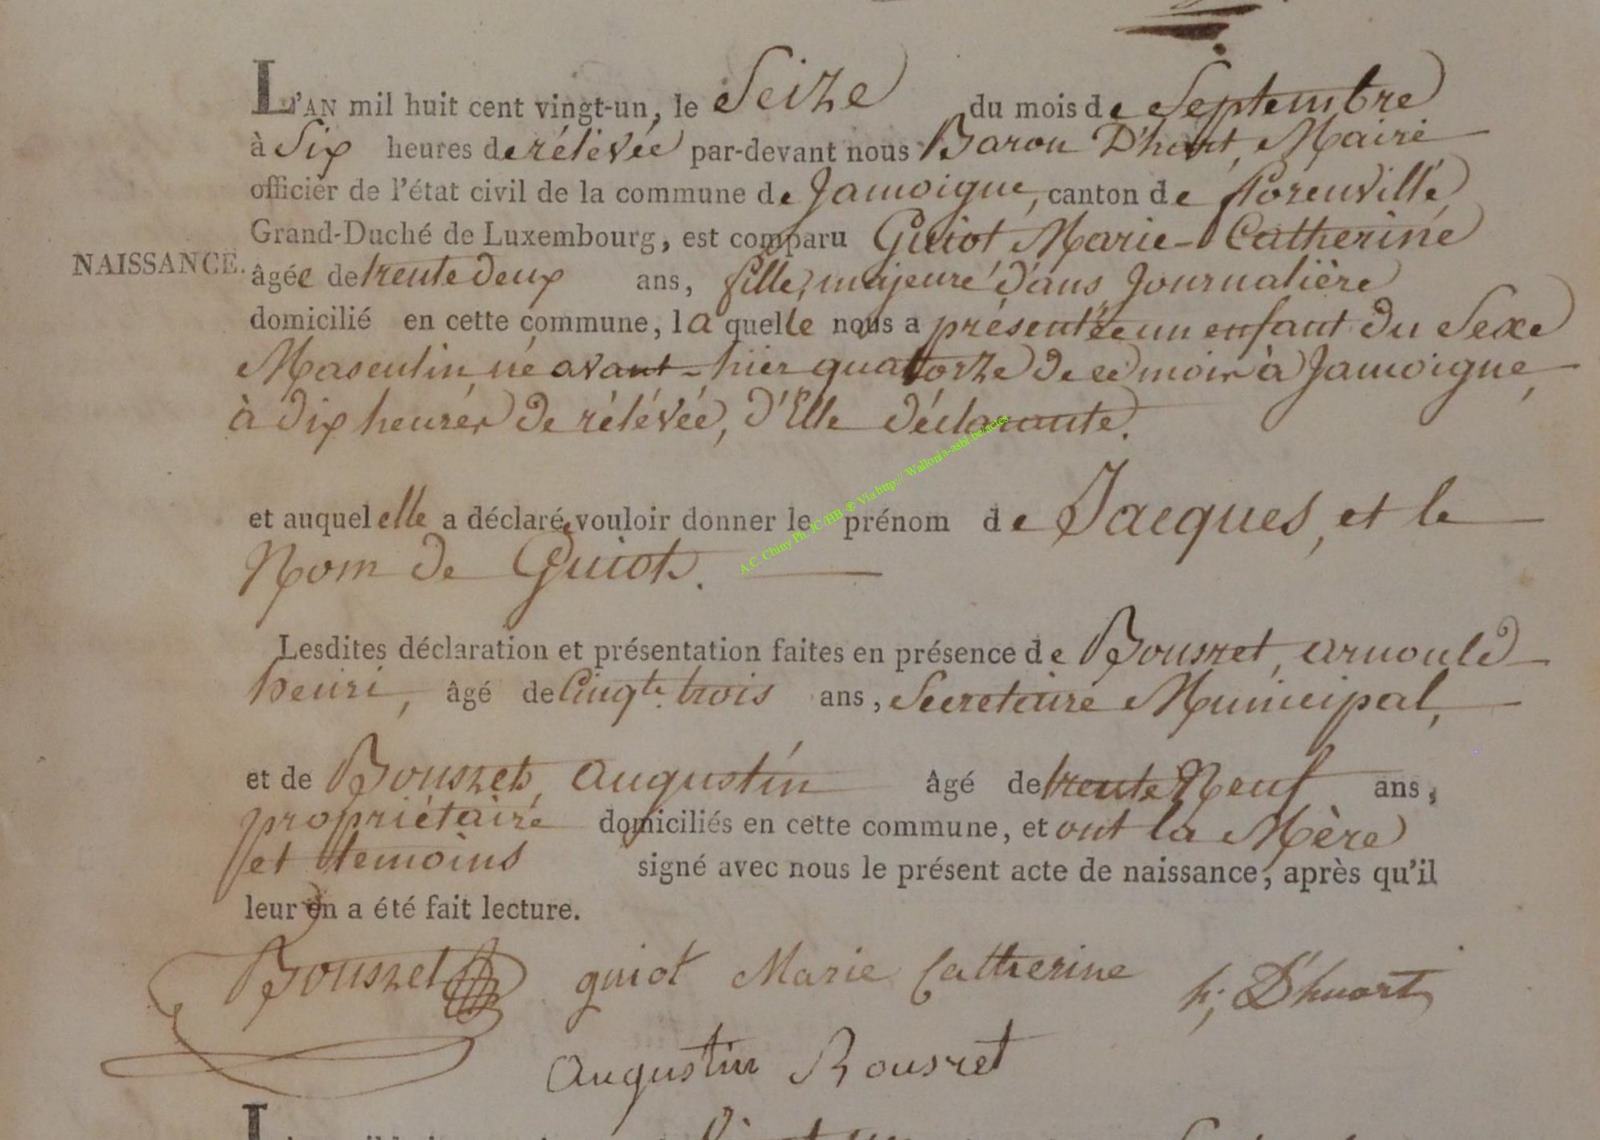 L'AN mil huit cent vingt-un, le Seize du mois de Septembre
à Six heures de rélévée par-devant nous Baron D'huart, Maire
officier de l'état civil de la commune de Jamoigne, canton de florenville
Grand-Duché de Luxembourg, est comparu Guiot, Marie-Catherine
NAISSANCE. âgée de trente deux ans, fille, majeure d'ans, Journalière
domicilié en cette commune, la quelle nous a présentée un enfant du Sexe
Masculin, né avant-hier quatorze de ce mois à Jamoigne,
à dix heures de rélévée, d'Elle déclarante.
et auquel elle a déclarée vouloir donner le prénom de Jacques, et le
Nom de Guiot.
A.C. Chiny Ph. JC/HB ® Via http:// Wallonia-asbl.be/actes
Lesdites déclaration et présentation faites en présence de Bousret, arnould
henri, âgé de Cinqte. trois ans, Secretaire Municipal,
et de Bousret, augustin âgé de trente Neuf ans,
propriétaire domiciliés en cette commune, et ont la Mère
et temoins signé avec nous le présent acte de naissance, après qu'il
leur en a été fait lecture.
Bousret guiot Marie Catherine h; D'huart
augustin Bousret